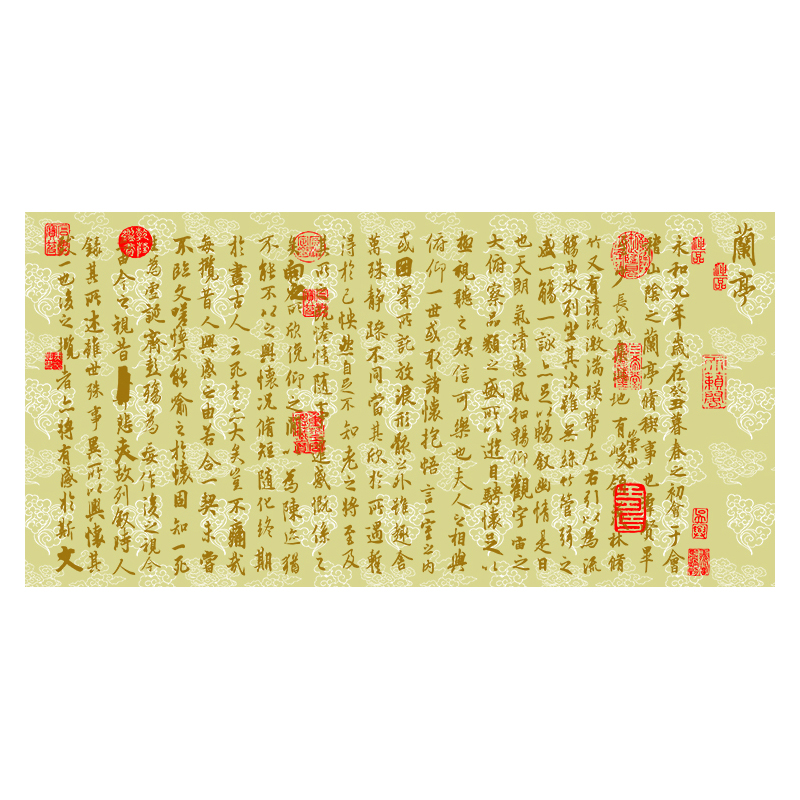 蘭亭
永和九年歲在癸丑暮春之初會于會
山陰之蘭亭脩禊事也羣賢畢
長咸 地有 領 林脩
竹又有清流激湍暎帶左右引以為流
觴曲水列坐其次雖無絲竹管弦之
盛一觴一詠亦足以暢叙幽情是日
也天朗氣清惠風和暢仰觀宇宙之
大俯察品類之盛所以遊目騁懷足以
極視聽之娛信可樂也夫人之相與
俯仰一世或取諸懷抱悟言一室之內
或因寄所託放浪形骸之外雖趣舍
萬殊靜躁不同當其欣於所遇暫
得於己怏然自足不知老之將至及
其所 惓情隨事 遷感慨係之
矣向之所欣俛仰之間以為陳迹猶
不能不以之興懷況脩短隨化終期
於盡古人云死生亦大矣豈不痛哉
每攬昔人興感之由若合一契未嘗
不臨文嗟悼不能喻之於懷固知一死
為虛誕齊彭殤為妄作後之視今
今之視昔 悲夫故列叙時人
錄其所述雖世殊事異所以興懷其
致一也後之攬者亦將有感於斯文